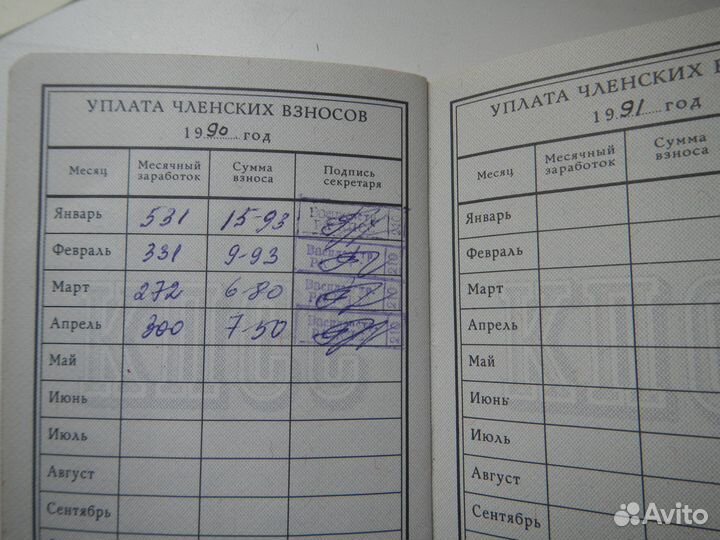 УПЛАТА ЧЛЕНСКИХ ВЗНОСОВ
1990 год
Месяц Месячный заработок Сумма взноса Подпись секретаря
Январь 531 15-93
Февраль 331 9-93
Март 272 6-80
Апрель 300 7-50
Май
Июнь
Июль
Август
Сентябрь
УПЛАТА ЧЛЕНСКИХ ВЗ
1991 год
Месяц Месячный заработок Сумма взноса
Январь
Февраль
Март
Апрель
Май
Июнь
Июль
Август
Сентябрь
КПСС
КПС
Avito